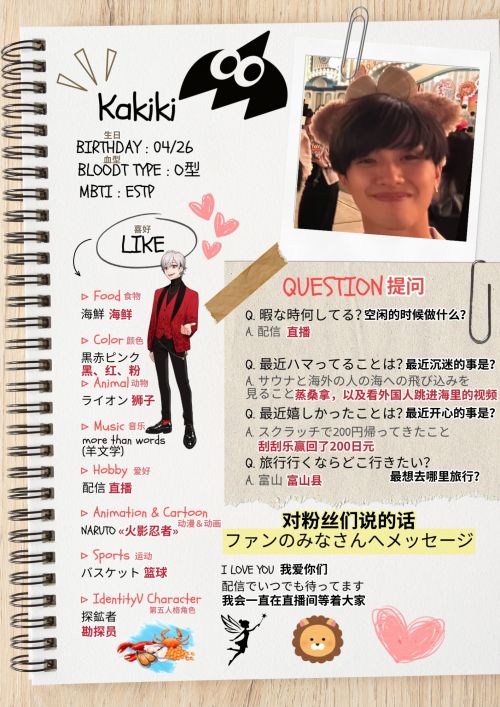 Kakiki
生日
BIRTHDAY : 04/26
血型
BLOODT TYPE : O型
MBTI : ESTP
喜好
LIKE
Food 食物
海鮮 海鲜
Color 颜色
黒赤ピンク
黑、红、粉
Animal 动物
ライオン 狮子
Music 音乐
more than words
(羊文学)
Hobby 爱好
配信 直播
Animation & Cartoon
动漫&动画
NARUTO «火影忍者»
Sports 运动
バスケット 篮球
IdentityV Character
第五人格角色
探鉱者
勘探员
QUESTION 提问
Q. 暇な時何してる? 空闲的时候做什么?
A. 配信 直播
Q. 最近ハマってることは? 最近沉迷的事是?
A. サウナと海外の人の海への飛び込みを
見ること 蒸桑拿，以及看外国人跳进海里的视频
Q. 最近嬉しかったことは? 最近开心的事是?
A. スクラッチで200円帰ってきたこと
刮刮乐赢回了200日元
Q. 旅行行くならどこ行きたい?
最想去哪里旅行?
A. 富山 富山县
对粉丝们说的话
ファンのみなさんへメッセージ
I LOVE YOU 我爱你们
配信でいつでも待ってます
我会一直在直播间等着大家